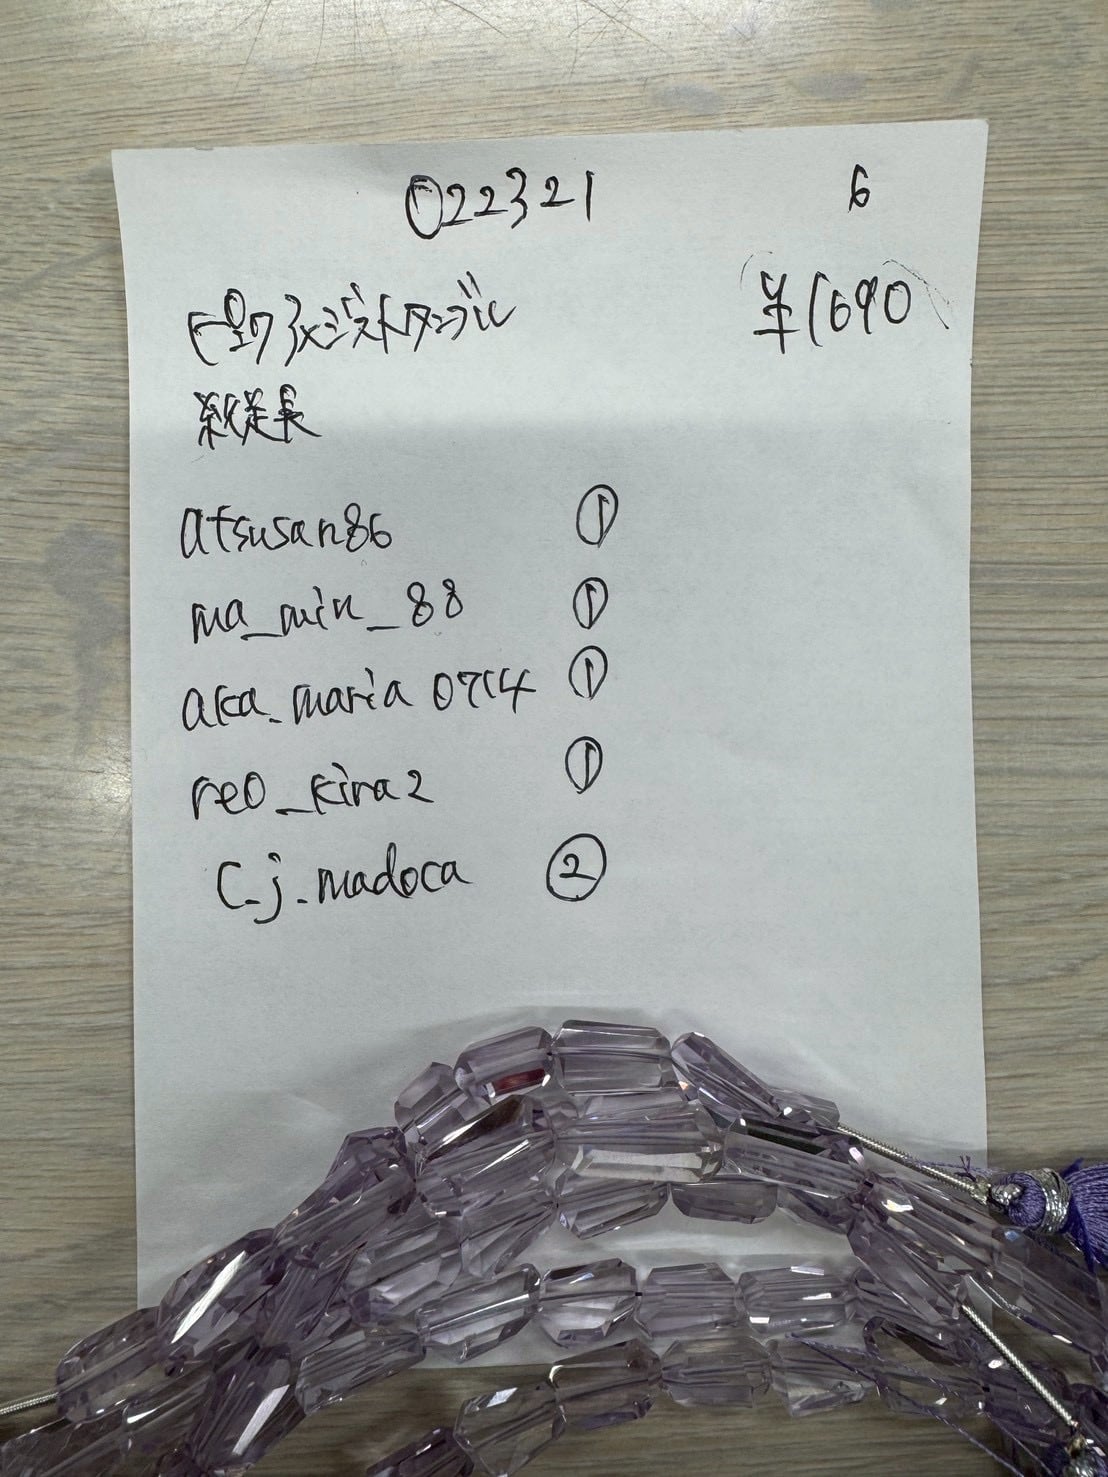 ①022321 6
ピンクアメジストタンブル ¥1690
縦長
atsusan86 ①
ma_min_88 ①
aka_maria 0714 ①
reo_kira2 ①
c.j.madoca ②